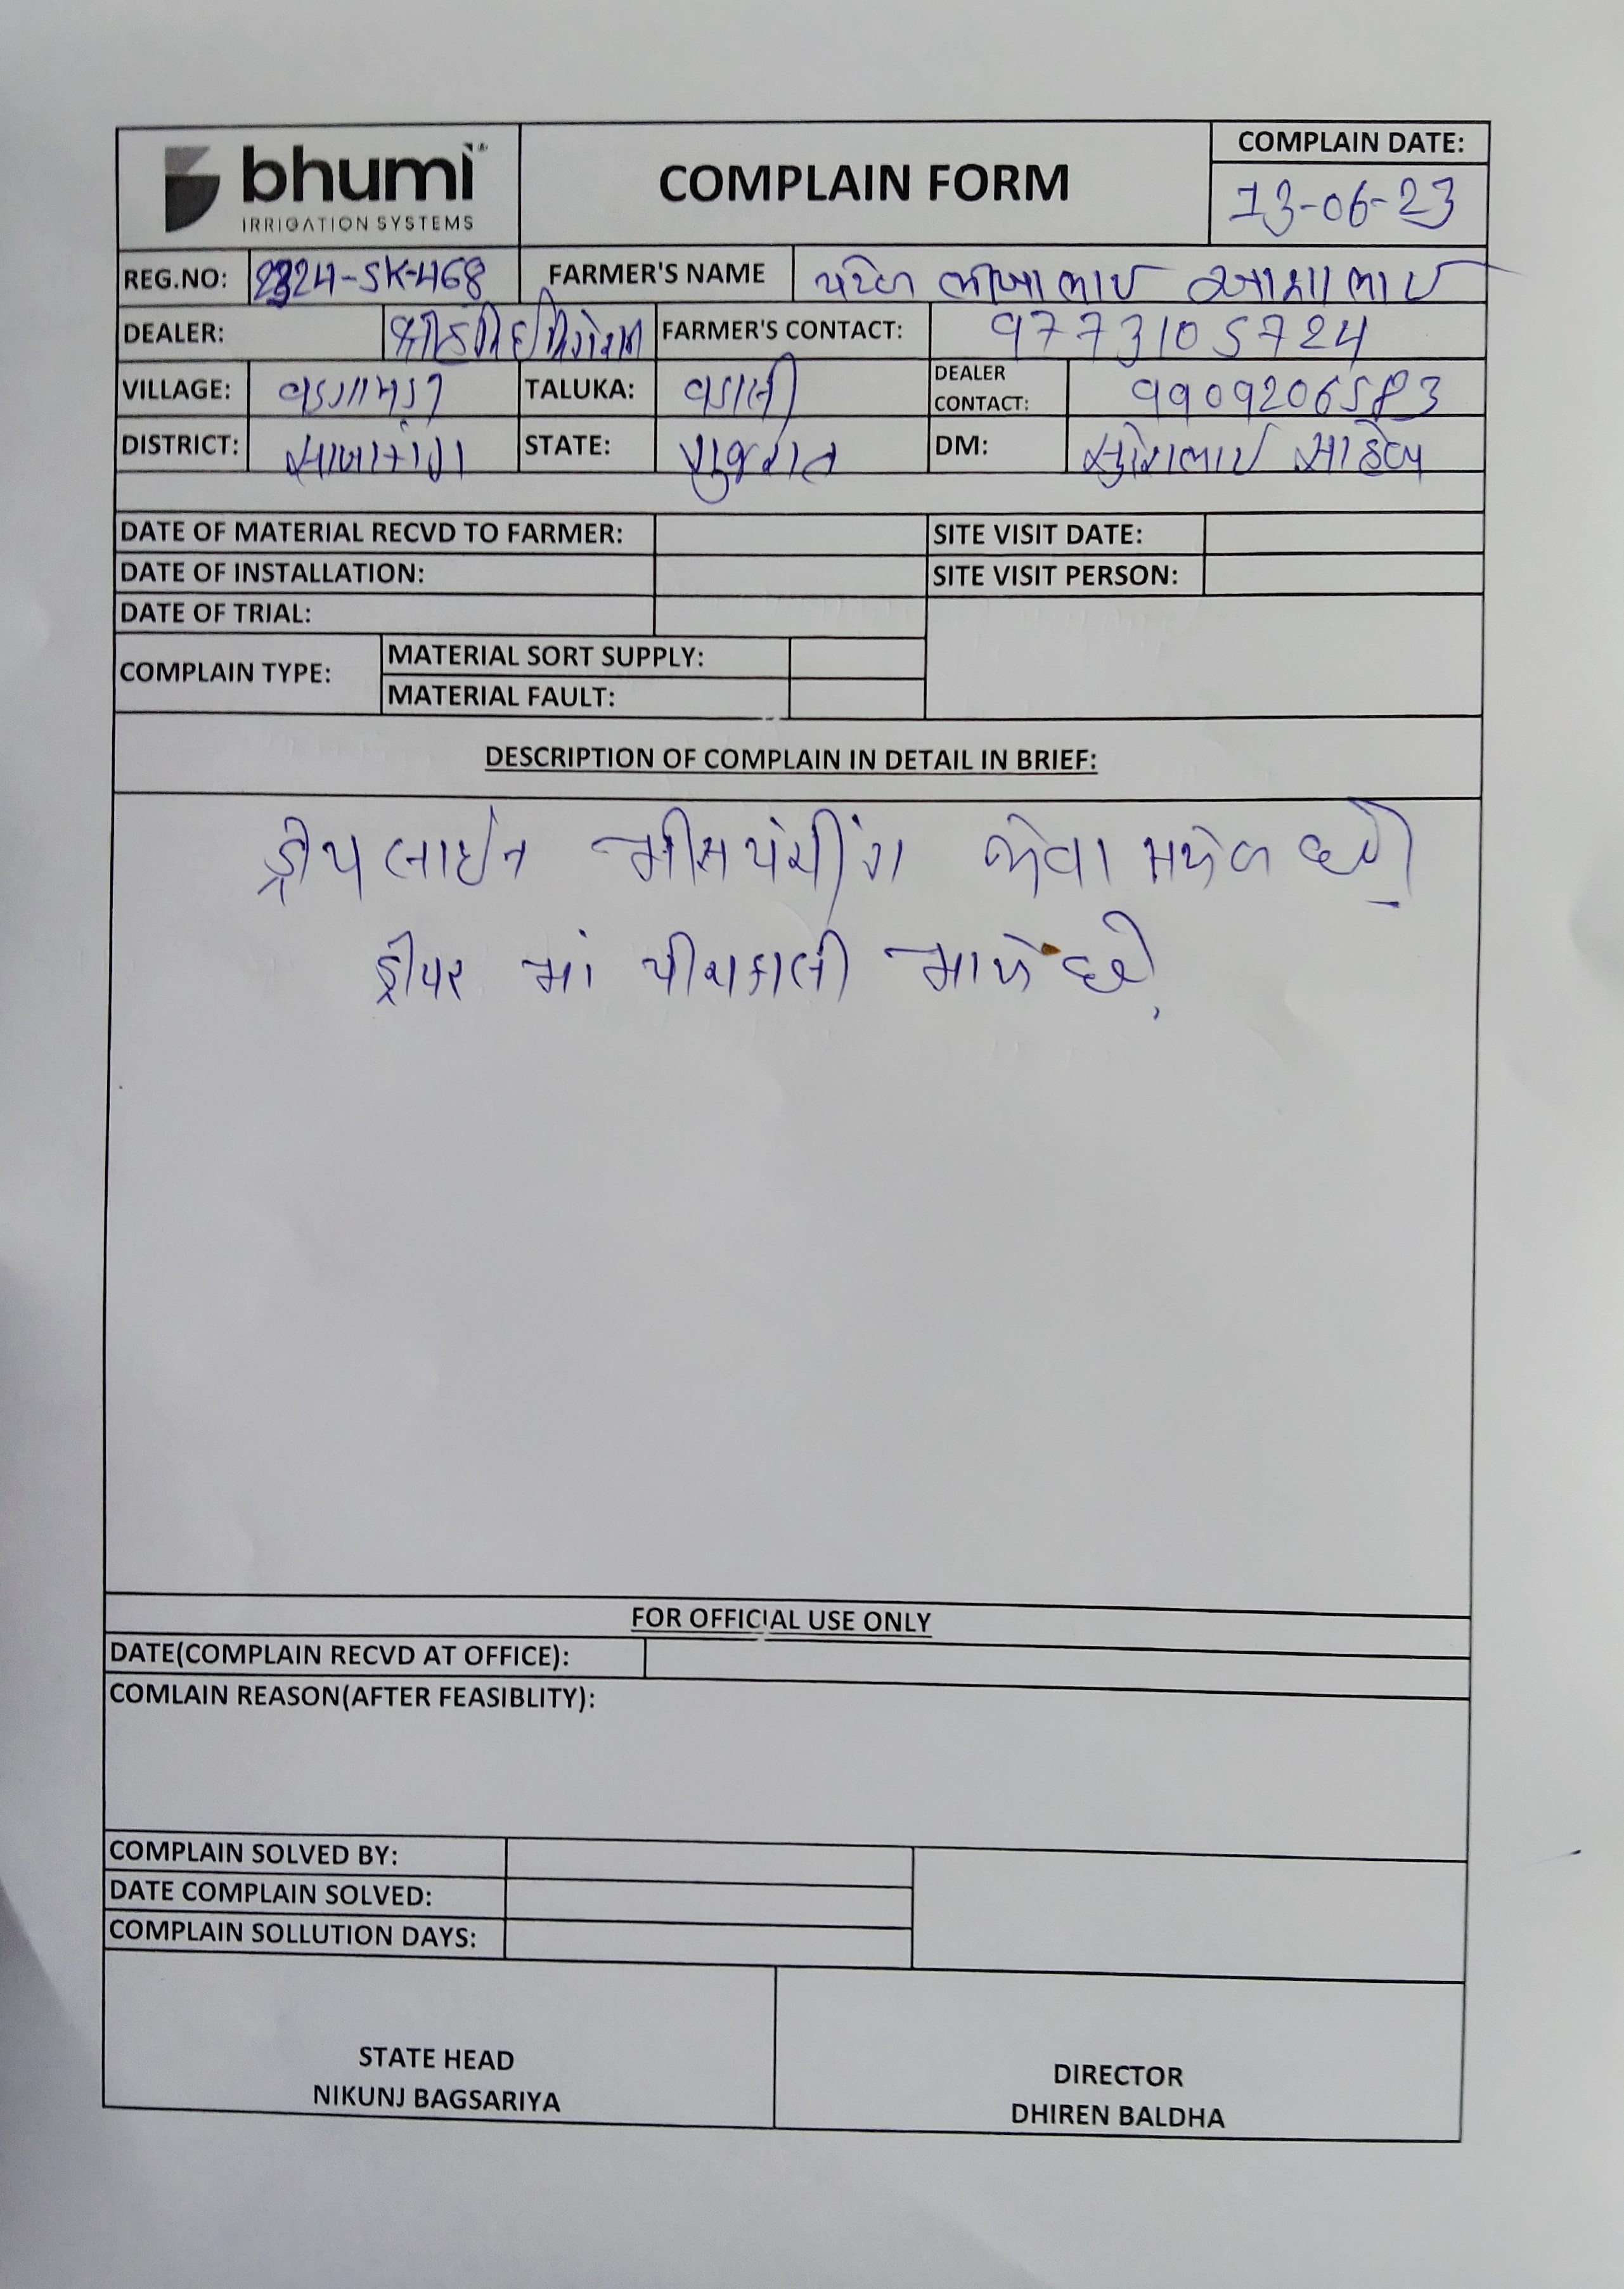 bhumi
IRRIGATION SYSTEMS
COMPLAIN FORM
COMPLAIN DATE:
13-06-23
REG.NO: 2324-SK-468 FARMER'S NAME પટેલ ભીખાભાઈ
DEALER: FARMER'S CONTACT: 9773105724
VILLAGE: TALUKA: વડાલી DEALER CONTACT: 9909206583
DISTRICT: સાબરકાંઠા STATE: ગુજરાત DM: સાહેબ
DATE OF MATERIAL RECVD TO FARMER: SITE VISIT DATE:
DATE OF INSTALLATION: SITE VISIT PERSON:
DATE OF TRIAL:
COMPLAIN TYPE: MATERIAL SORT SUPPLY:
MATERIAL FAULT:
DESCRIPTION OF COMPLAIN IN DETAIL IN BRIEF:
ડ્રીપ લાઈન મીસપંચીંગ જોવા મળેલ છે.
ડ્રીપર માં પીચકારી મારે છે.
FOR OFFICIAL USE ONLY
DATE(COMPLAIN RECVD AT OFFICE):
COMLAIN REASON(AFTER FEASIBLITY):
COMPLAIN SOLVED BY:
DATE COMPLAIN SOLVED:
COMPLAIN SOLLUTION DAYS:
STATE HEAD
NIKUNJ BAGSARIYA
DIRECTOR
DHIREN BALDHA